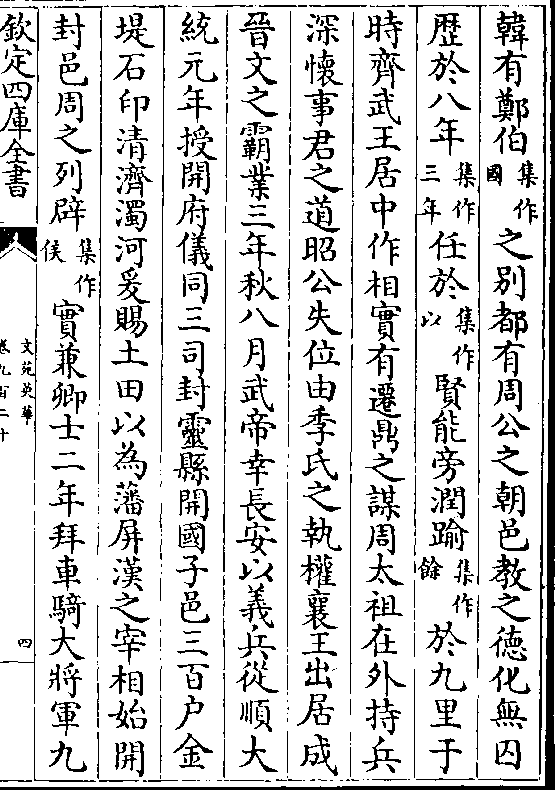 韓有鄭伯集作國之別都有周公之朝邑教之德化無囚
歴於八年集作三年任於集作以賢能旁潤踰集作餘於九里于
時齊武王居中作相實有遷鼎之謀周太祖在外持兵
深懷事君之道昭公失位由季氏之執權襄王出居成
晉文之霸業三年秋八月武帝幸長安以義兵從順大
統元年授開府儀同三司封靈縣開國子邑三百户金
堤石印清濟濁河爰賜土田以為藩屏漢之宰相始開
封邑周之列辟集作侯實兼卿士二年拜車騎大將軍九
欽定四庫全書
文苑英華
卷九百二十
四